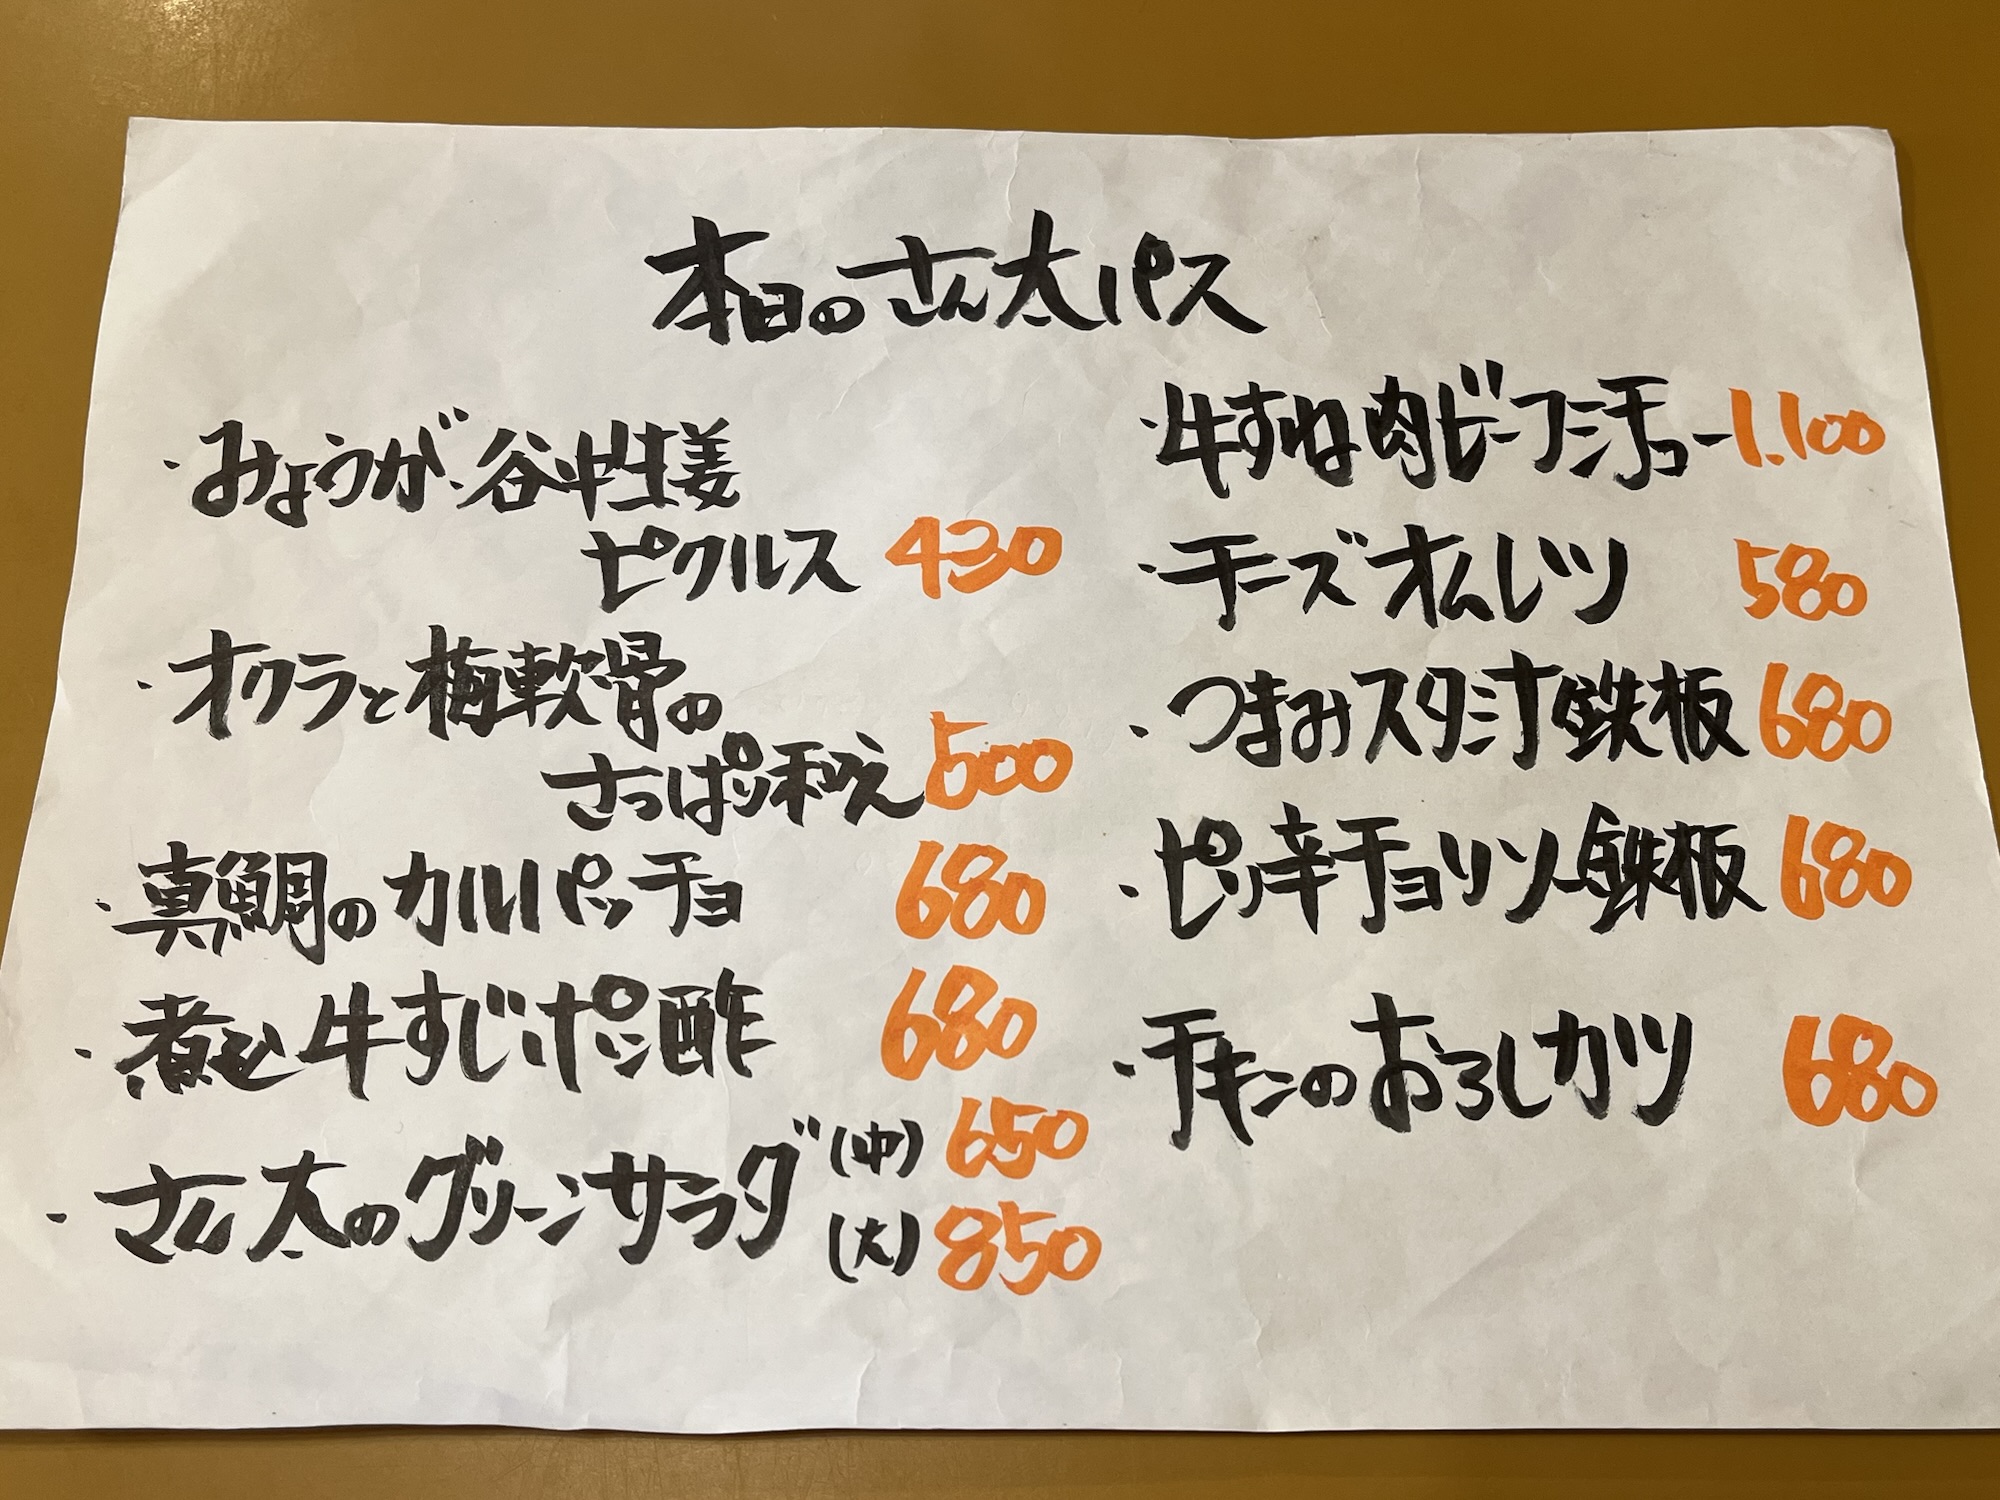 本日のさん太パス
・みょうが、谷中生姜
ピクルス 430
・オクラと梅軟骨の
さっぱり和え 500
・真鯛のカルパッチョ 680
・煮込牛すじポン酢 680
・さん太のグリーンサラダ (中) 650
(大) 850
・牛すね肉ビーフシチュー 1.100
・チーズオムレツ 580
・つまみスタミナ鉄板 680
・ピリ辛チョリソー鉄板 680
・チキンのおろしカツ 680